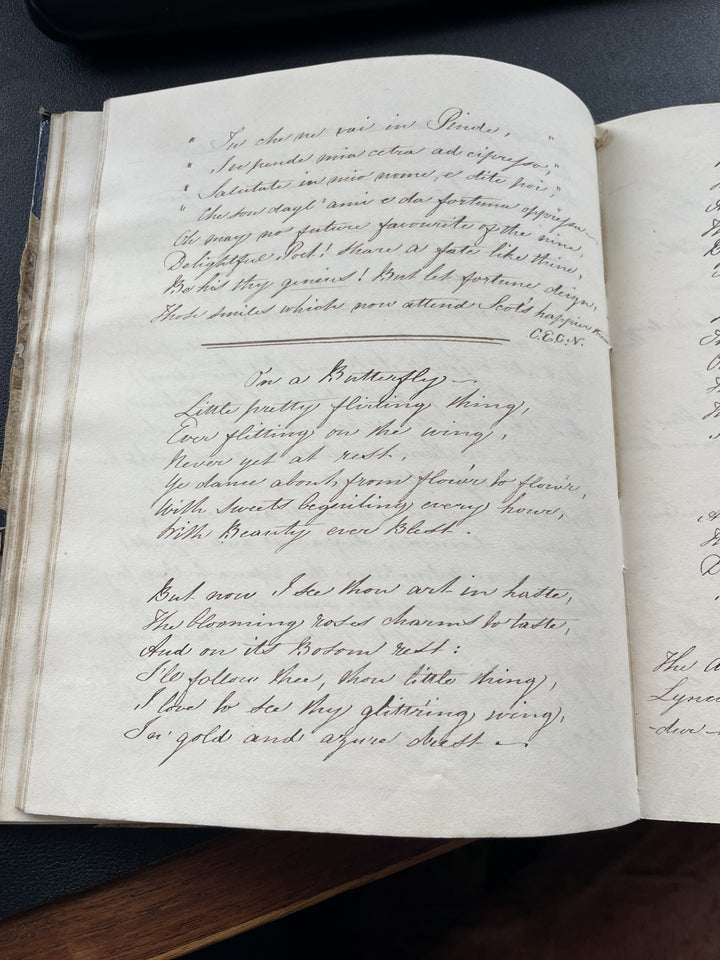 " Tu che ne vai in Pindo, "
" Sospende mia cetra ad cipresso, "
" Salutate in mio nome, e dite poi, "
" Che son dagl' anni e da fortuna oppressa —
Oh may no future favourite of the nine,
Delightful Poet! share a fate like thine,
Be his thy genius! But let fortune deign,
Those smiles which now attend Scot's happier
C.E.C.N.
On a Butterfly —
Little pretty flirting thing,
Ever flitting on the wing,
Never yet at rest,
Ye dance about from flow'r to flow'r,
With sweets beguiling every hour,
With Beauty ever Blest.
But now I see thou art in haste,
The blooming roses charms to taste,
And on its Bosom rest:
I'll follow thee, thou little thing,
I love to see thy glitt'ring wing,
In gold and azure drest —
The
Lync